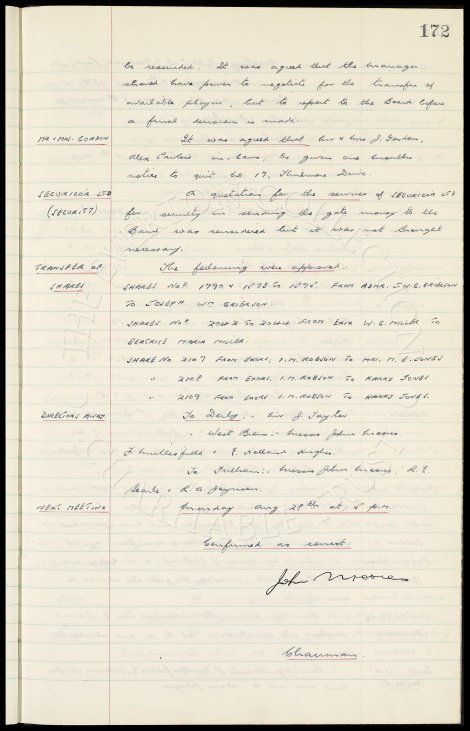 172
be rescinded. It was agreed that the manager
should have power to negotiate for the transfer of
available players, but to report to the Board before
a final decision is made.
MR & MRS. GORDON It was agreed that Mr & Mrs J. Gordon,
Alex Parker's in-laws, be given one months
notice to quit No. 17, Thirlmere Drive.
SECURICOR LTD A quotation for the services of SECURICOR LTD
(SECURITY) for security in sending the gate money to the
Bank was considered but it was not thought
necessary.
TRANSFER OF The following were approved:
SHARES SHARES NOS. 1790 & 1873 TO 1875. FROM ADMR. J.W.G. GRIERSON
TO JOSEPH WM GRIERSON
SHARES NOS. TO FROM ERIK W. G. MILLER TO
BEATRICE MARIA MILLER
SHARE NO 2107 FROM EXORS. I.M. ROBSON TO MRS. M. E. JONES
" 2108 FROM EXORS. I.M. ROBSON TO HARRY JONES
" 2109 FROM EXORS I.M. ROBSON TO HARRY JONES.
DIRECTORS AWAY. To Derby:- Mr J. Taylor
West Brom:- Messrs John Moores
F Micklesfield & E Holland Hughes.
To Fulham:- Messrs John Moores, R.E
Searle & R.A. Jaynson.
NEXT MEETING Monday Aug 28th at 5 P.M.
Confirmed as correct.
John Moores
Chairman.
THE EVERTON COLLECTION
CHARITABLE TRUST